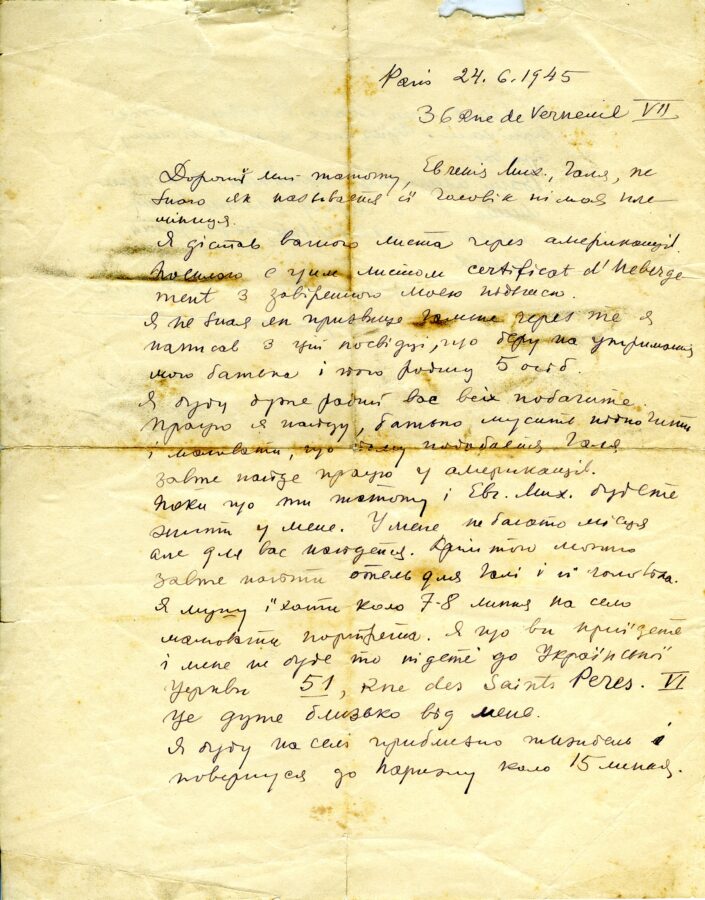 Paris 24.6.1945
36 Rue de Verneuil VII
Дорогий мій татому, Евгенія Мих., Галя, не
знаю як називается її чоловік ні моя пле
мінниця.
Я дістав вашого листа через американців.
Посилаю с цим листом certificat d'heberge
ment з завіренною моею підписю.
Я не знаю як призвище Галине через те я
написав з цій посвідці, що беру на утримання
мого батька і його родину 5 осіб.
Я буду дуже радий вас всіх побачити.
Працю я найду, батько мусить відпочити
і малювати, що йому подобается Галя
завше найде працю у американців.
Поки що ти татому і Евг. Мих. будете
жити у мене. У мене не багато місця
але для вас найдется. Крім того можно
завше найти отель для Галі і її чоловіка.
Я мушу їхати коло 7-8 липня на село
малювати портрета. Я що ви приїдете
і мене не буде то підете до Української
Церкви 51, Rue des Saints Peres. VI
Це дуже близько від мене.
Я буду на селі приблизно тиждень і
повернуся до Паризу коло 15 липня.